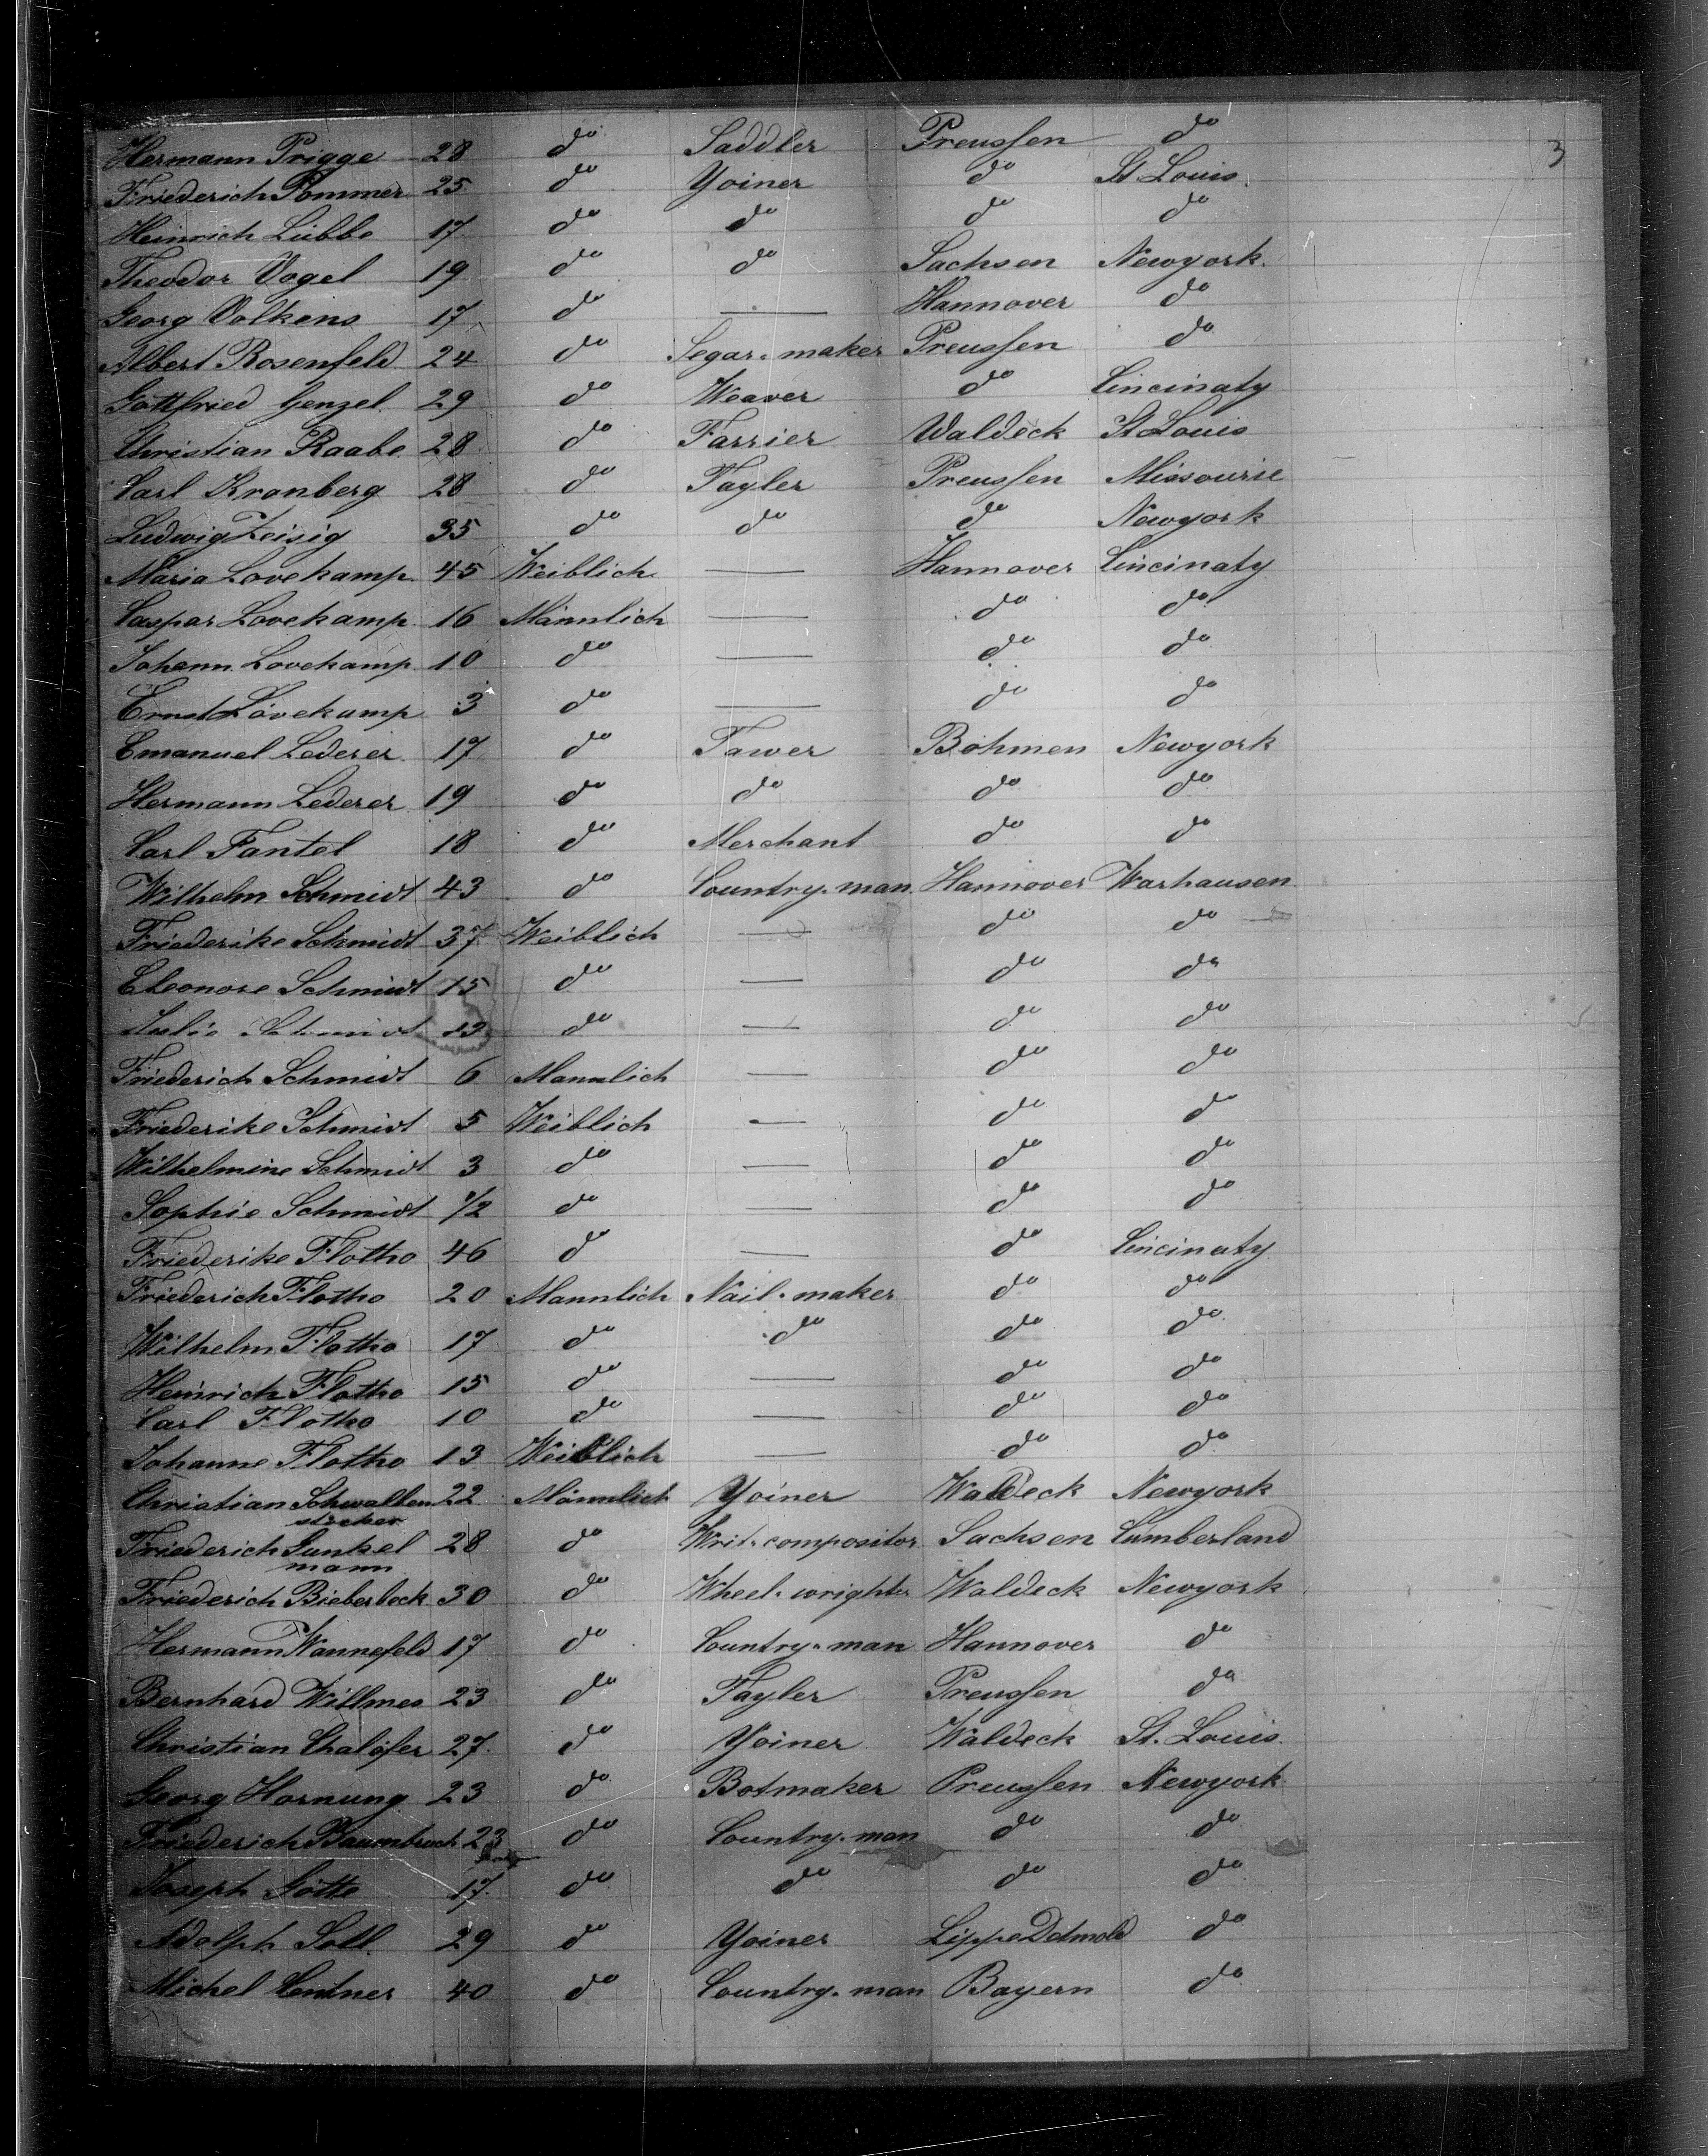 3
Hermann Prigge 28 do Saddler Preussen do
Friederich Pommer 25 do Yoiner do St. Louis
Heinrich Lübbe 17 do do do do
Theodor Vogel 19 do do Sachsen Newyork
Georg Volkens 17 do — Hannover do
Albert Rosenfeld 24 do Segar-maker Preussen do
Gottfried Genzel 29 do Weaver do Cincinaty
Christian Raabe 28 do Farrier Waldeck St Louis
Carl Kronberg 28 do Tayler Preussen Missourie
Ludwig Zeisig 35 do do do Newyork
Maria Lovekamp 45 Weiblich — Hannover Cincinaty
Caspar Lovekamp 16 Männlich — do do
Johann Lovekamp 10 do — do do
Ernst Lövekamp 3 do — do do
Emanuel Lederer 17 do Tawer Böhmen Newyork
Hermann Lederer 19 do do do do
Carl Fantel 18 do Merchant do do
Wilhelm Schmidt 43 do Country-man Hannover Warhausen
Friederike Schmidt 37 Weiblich — do do
Eleonore Schmidt 15 do — do do
Schmidt do — do do
Friederich Schmidt 6 Mannlich — do do
Friederike Schmidt 5 Weiblich — do do
Wilhelmine Schmidt 3 do — do do
Sophie Schmidt 1/2 do — do do
Friederike Flotho 46 do — do Cincinaty
Friederich Flotho 20 Mannlich Nail-maker do do
Wilhelm Flotho 17 do do do do
Heinrich Flotho 15 do — do do
Carl Flotho 10 do — do do
Johanne Flotho 13 Weiblich — do do
Christian Schwalben 22 Männlich Yoiner Waldeck Newyork
stöcker
Friederich Gunkel 28 do Writ-compositor Sachsen Cumberland
mann
Friederich Bieberbeck 30 do Wheel-wrighter Waldeck Newyork
Hermann Wannefeld 17 do Country-man Hannover do
Bernhard Willmes 23 do Tayler Preussen do
Christian 27 do Yoiner Waldeck St. Louis
Georg Hornung 23 do Botmaker Preussen Newyork
Friederich Baumbach 23 do Country-man do do
Joseph Götte 17 do do do do
Adolph Soll 29 do Yoiner Lippe Detmold do
Michel Centner 40 do Country-man Bayern do